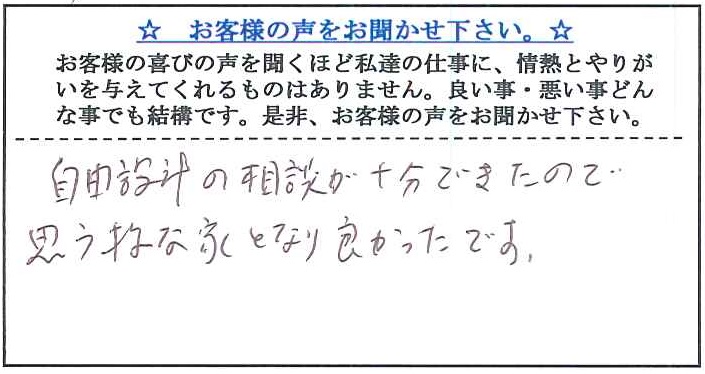 ☆ お客様の声をお聞かせ下さい。☆
お客様の喜びの声を聞くほど私達の仕事に、情熱とやりが
いを与えてくれるものはありません。良い事・悪い事どん
な事でも結構です。是非、お客様の声をお聞かせ下さい。
自由設計の相談が十分できたので
思う様な家となり良かったです。